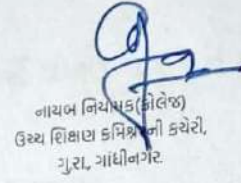 નાયબ નિયામક(કોલેજ)
ઉચ્ચ શિક્ષણ કમિશ્નરની કચેરી,
ગુ.રા., ગાંધીનગર